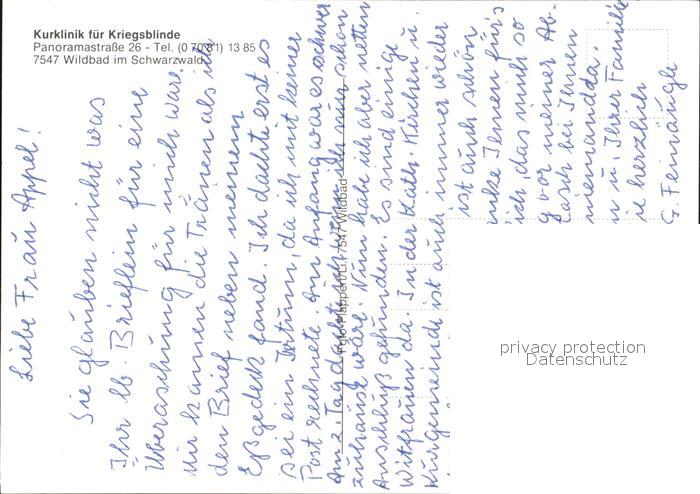 Kurklinik für Kriegsblinde
Panoramastraße 26 - Tel. (0 70 81) 13 85
7547 Wildbad im Schwarzwald
Liebe Frau Appel!
Sie glauben nicht was
Ihr lb. Brieflein für eine
Überaschung für mich war.
Mir kamen die Tränen als ich
den Brief neben meinem
Eßgedeck fand. Ich dachte erst es
sei ein Irtum, da ich mit keiner
Post rechnete. Am Anfang war es schwer
Am 2. Tag dachte ich wenn ich nur schon
zuhause wäre. Nun habe ich aber netten
Anschluß gefunden. Es sind einige
Witfrauen da. In der Kath. Kirchen u.
Kurgemeinde ist auch immer wieder
ist auch schön
nke Ihnen für's
ich, das mich so
g vor meiner Ab-
lasch bei Ihnen
niemand da.
n u. Ihrer Familie
ie herzlich
G. Feinäugle
Foto-Plappert/Li, 7547 Wildbad
privacy protection
Datenschutz